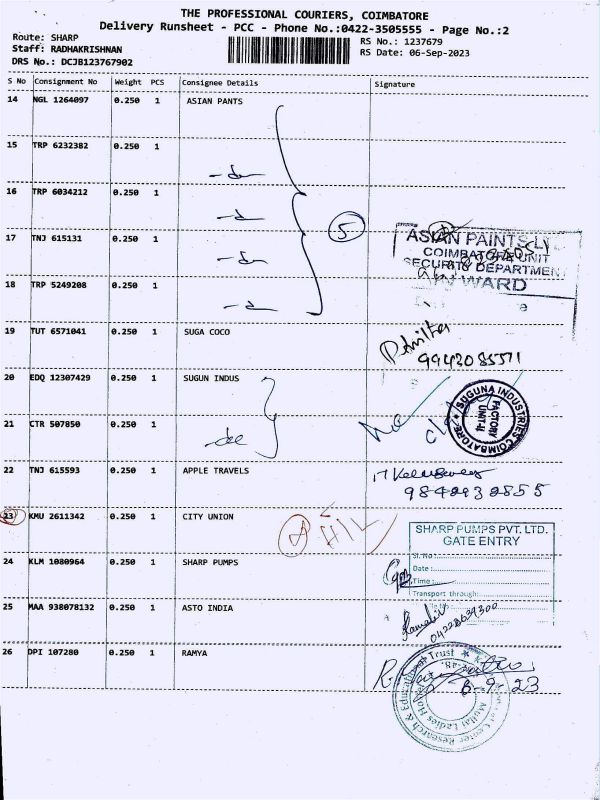 THE PROFESSIONAL COURIERS, COIMBATORE
Delivery Runsheet - PCC - Phone No.:0422-3505555 - Page No.:2
Route: SHARP
RS No.: 1237679
Staff: RADHAKRISHNAN
RS Date: 06-Sep-2023
DRS No.: DCJB123767902
S No Consignment No Weight PCS Consignee Details Signature
14 NGL 1264097 0.250 1 ASIAN PANTS
15 TRP 6232382 0.250 1
16 TRP 6034212 0.250 1
5
17 TNJ 615131 0.250 1
ASIAN PAINTS
COIMBATORE UNIT
SECURITY DEPARTMENT
18 TRP 5249208 0.250 1
WARD
19 TUT 6571041 0.250 1 SUGA COCO
9943085571
20 EDQ 12307429 0.250 1 SUGUN INDUS
SUGUNA INDUSTRIES COIMBATORE
FACTORY
UNIT-II
21 CTR 507850 0.250 1
22 TNJ 615593 0.250 1 APPLE TRAVELS
9842932855
23 KMU 2611342 0.250 1 CITY UNION
SHARP PUMPS PVT. LTD.
GATE ENTRY
24 KLM 1080964 0.250 1 SHARP PUMPS
Sl. No
Date :
Time :
Transport through:
25 MAA 938078132 0.250 1 ASTO INDIA
26 DPI 107280 0.250 1 RAMYA
6-9-23
Center Research & Educational Trust
Mullai Ladies